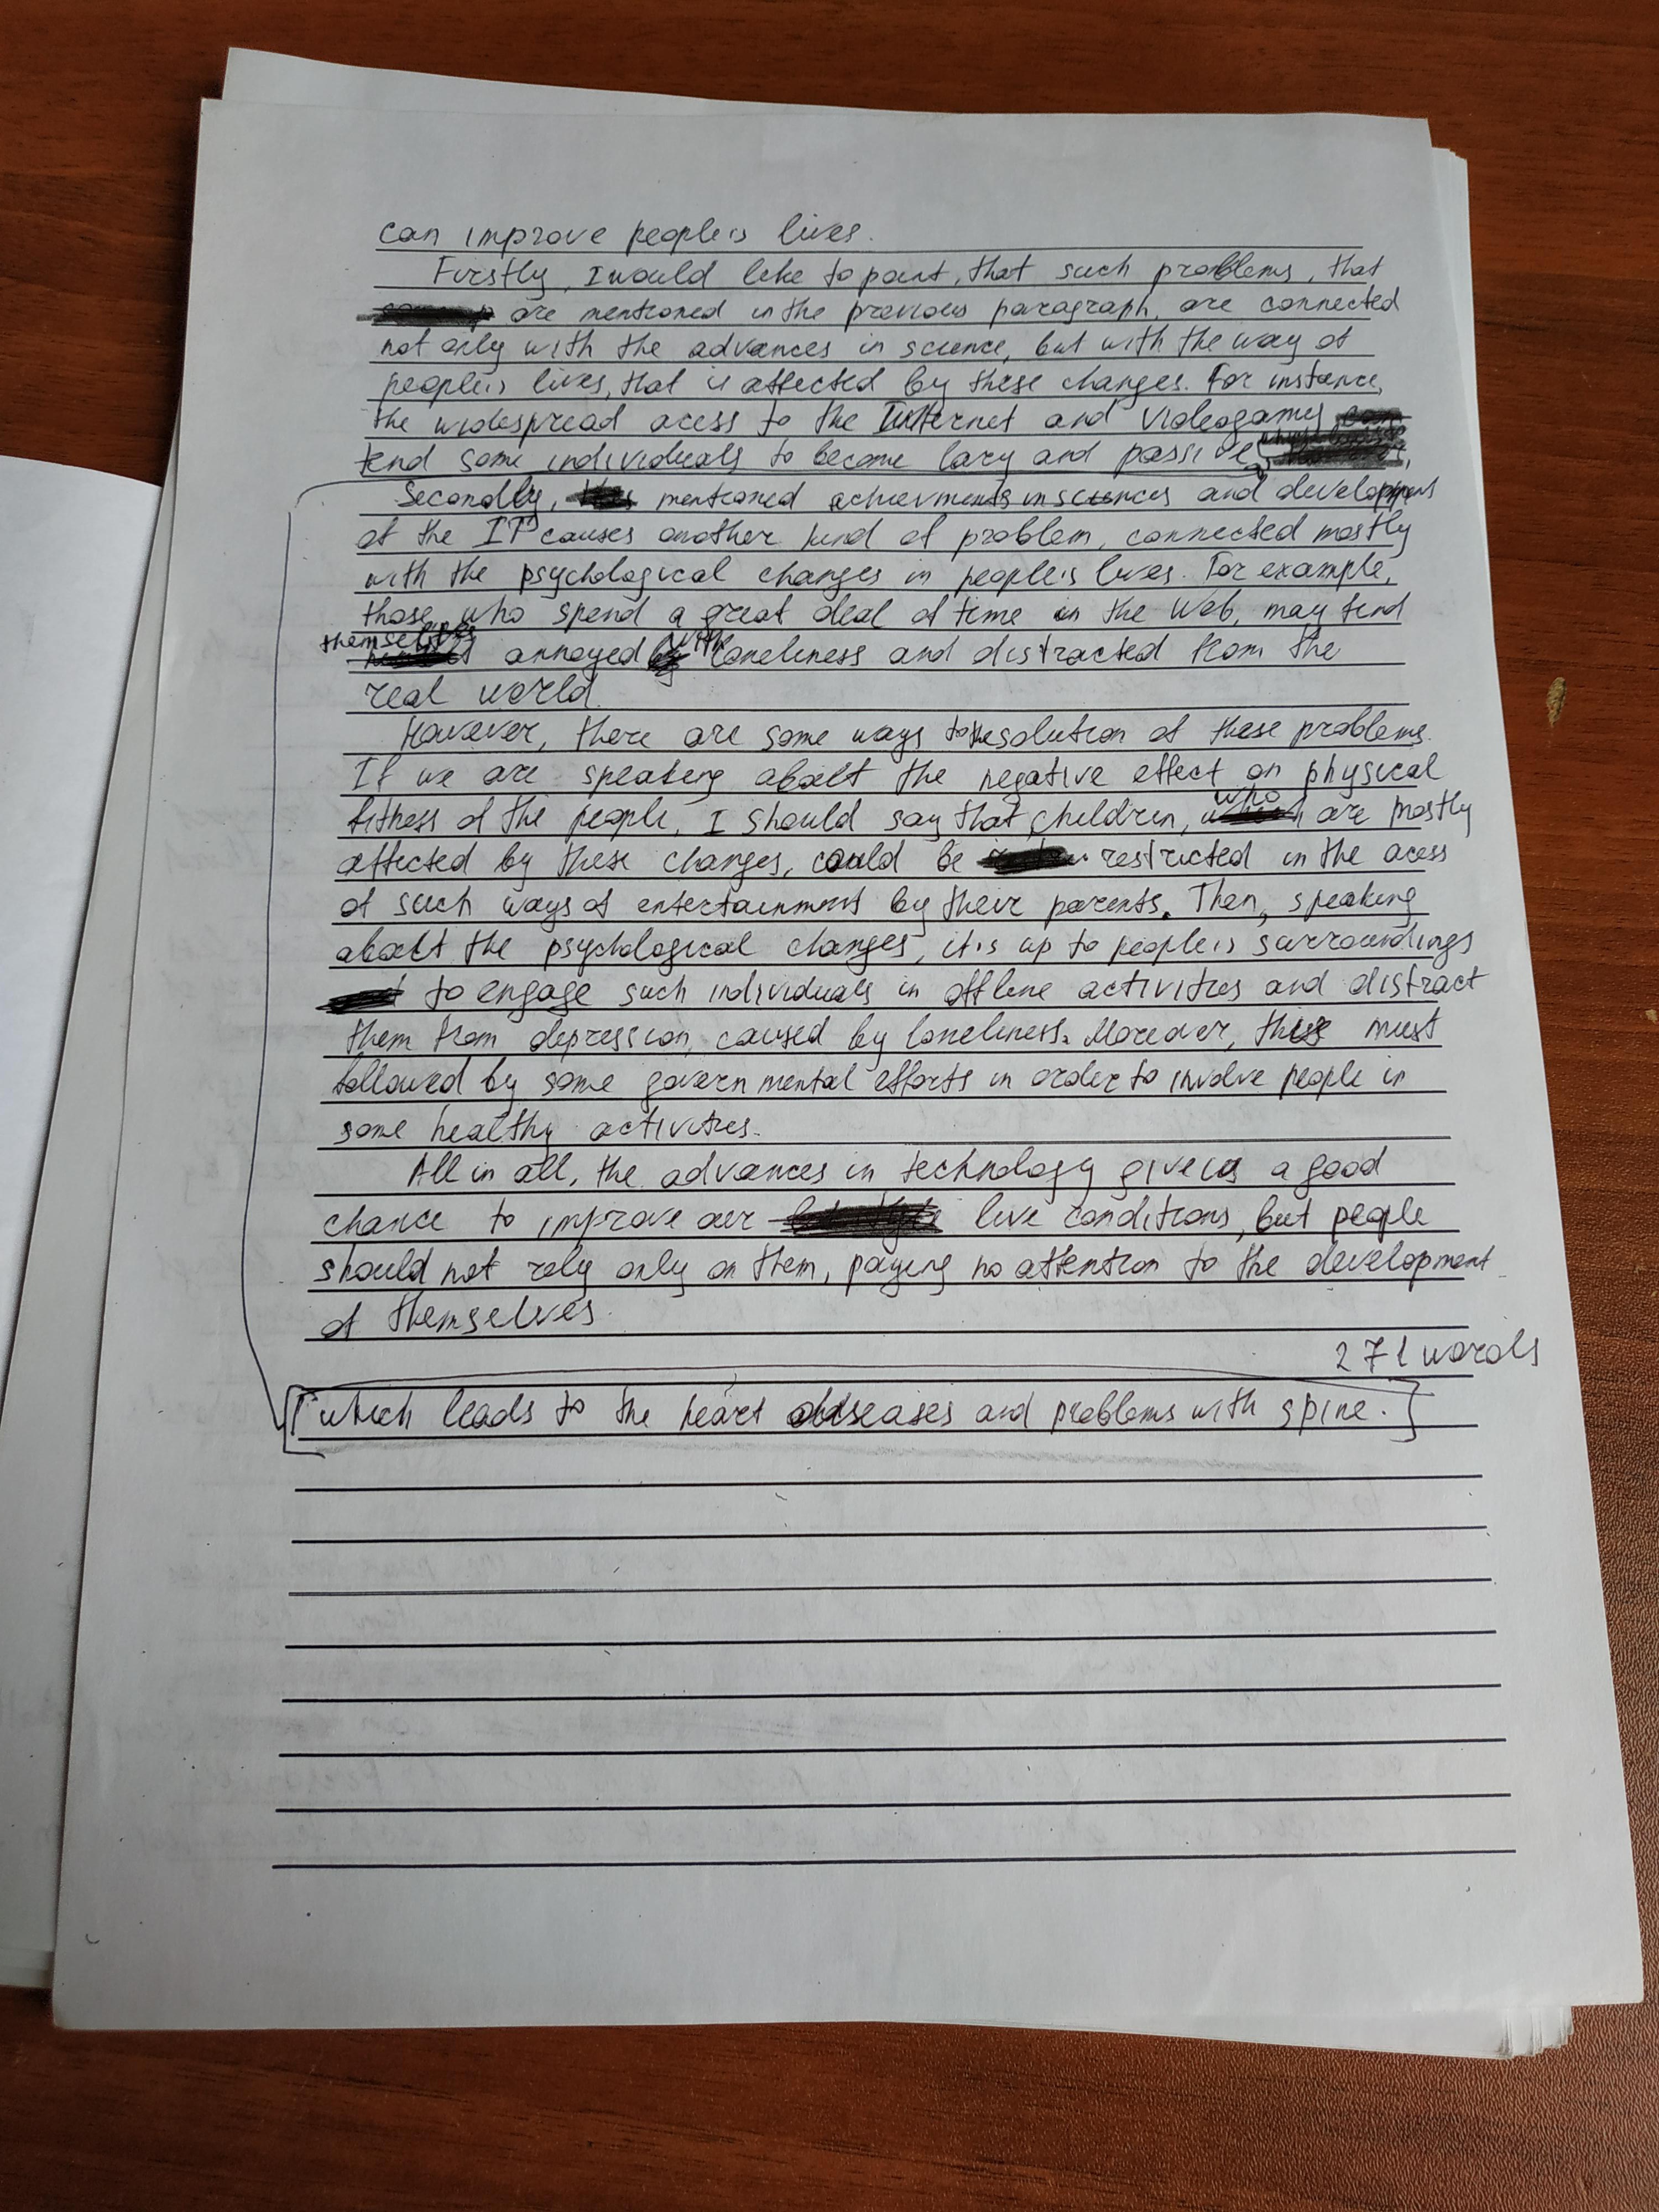 can improve people's lives.
Firstly, I would like to point, that such problems, that
are mentioned in the previous paragraph, are connected
not only with the advances in science, but with the way of
people's lives, that is affected by these changes. For instance,
the widespread acess to the Internet and videogames
tend some individuals to become lazy and passive,
Secondly, mentioned achievments in sciences and development
of the IT causes another kind of problem, connected mostly
with the psychological changes in people's lives. For example,
those, who spend a great deal of time in the Web, may find
themselves annoyed with loneliness and distracted from the
real world.
However, there are some ways to the solution of these problems.
If we are speaking about the negative effect on physical
fitness of the people, I should say that children, who are mostly
affected by these changes, could be restricted in the acess
of such ways of entertainment by their parents. Then, speaking
about the psychological changes, it is up to people's surroundings
to engage such individuals in offline activities and distract
them from depression, caused by loneliness. Moreover, this must
followed by some governmental efforts in order to involve people in
some healthy activities.
All in all, the advances in technology give us a good
chance to improve our live conditions, but people
should not rely only on them, paying no attention to the development
of themselves.
271 words
[which leads to the heart diseases and problems with spine.]